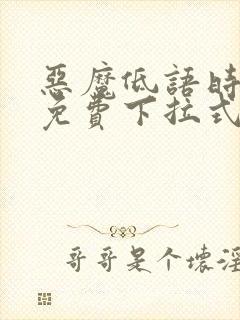 惡魔低語時
免費下拉式
哥哥是个壞淫